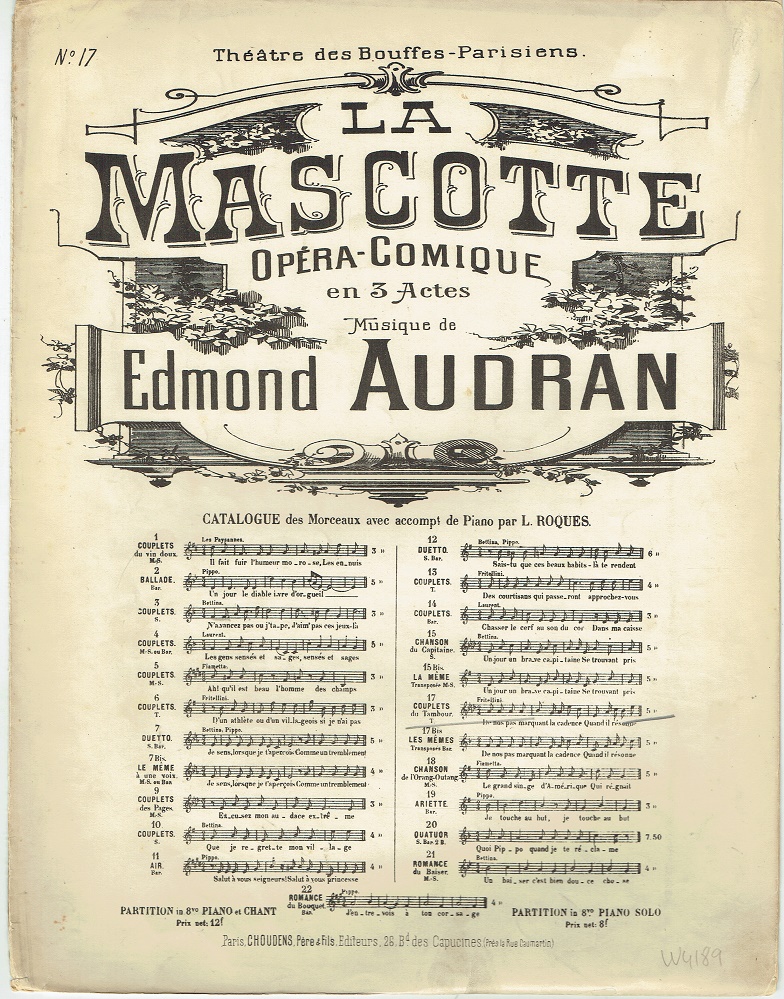 Nº 17
Théâtre des Bouffes-Parisiens.
LA
MASCOTTE
OPÉRA-COMIQUE
en 3 Actes
Musique de
Edmond AUDRAN
CATALOGUE des Morceaux avec accompt de Piano par L. ROQUES.
1
COUPLETS
du vin doux.
Les Paysannes.
3 "
Il fait fuir l'humeur mo_ro_se, Les en_nuis
2
BALLADE.
Bar.
Pippo.
5 "
Un jour le diable ivre d'or_gueil
3
COUPLETS.
S.
Bettina.
3 "
N'avancez pas ou j'ta_pe, J'aim' pas ces jeux-là
4
COUPLETS.
M-S. ou Bar.
Laurent.
5 "
Les gens sensés et sa_ges, sensés et sages
5
COUPLETS.
M-S.
Fiametta.
3 "
Ah! qu'il est beau l'homme des champs
6
COUPLETS.
T.
Fritellini.
3 "
D'un athlète ou d'un vil_la_geois si je n'ai pas
7
DUETTO.
S. Bar.
Bettina, Pippo.
5 "
Je sens, lorsque je t'aperçois Comme un tremblement
7 Bis
LE MÊME
à une voix.
M-S. ou Bar.
4 "
Je sens, lorsque je t'aperçois Comme un tremblement
9
COUPLETS
des Pages.
M-S.
3 "
Ex_cu_sez mon au_dace ex_trê_me
10
COUPLETS.
S.
Bettina.
4 "
Que je re_gret_te mon vil_la_ge
11
AIR.
Bar.
Pippo.
4 "
Salut à vous seigneurs! Salut à vous princesse
12
DUETTO.
S. Bar.
Bettina, Pippo.
6 "
Sais-tu que ces beaux habits-là te rendent
13
COUPLETS.
T.
Fritellini.
4 "
Des courtisans qui passe_ront approchez-vous
14
COUPLETS.
Bar.
Laurent.
3 "
Chasser le cerf au son du cor Dans ma caisse
15
CHANSON
du Capitaine.
S.
Bettina.
5 "
Un jour un bra_ve capi_taine Se trouvant pris
15 Bis.
LA MÊME
Transposée M-S.
5 "
Un jour un bra_ve capi_taine Se trouvant pris
17
COUPLETS
du Tambour.
T.
Fritellini.
5 "
De nos pas marquant la cadence Quand il résonne
17 Bis
LES MÊMES
Transposés Bar.
5 "
De nos pas marquant la cadence Quand il résonne
18
CHANSON
de l'Orang-Outang
M-S.
Fiametta.
5 "
Le grand sin_ge d'A_mé_ri_que Qui ré_gnait
19
ARIETTE.
Bar.
Pippo.
3 "
Je touche au but, je touche au but
20
QUATUOR
S. Bar. 2 B.
7.50
Quoi Pip_po quand je te ré_cla_me
21
ROMANCE
du Baiser.
M-S.
Bettina.
4 "
Un bai_ser c'est bien dou_ce cho_se
22
ROMANCE
du Bouquet.
Bar.
Pippo.
4 "
J'en_tre_vois à ton cor_sa_ge
PARTITION in 8vo PIANO et CHANT
Prix net: 12f
PARTITION in 8vo PIANO SOLO
Prix net: 8f
Paris, CHOUDENS, Père & Fils, Editeurs, 26, Bd des Capucines, (Près la Rue Caumartin)
W4189